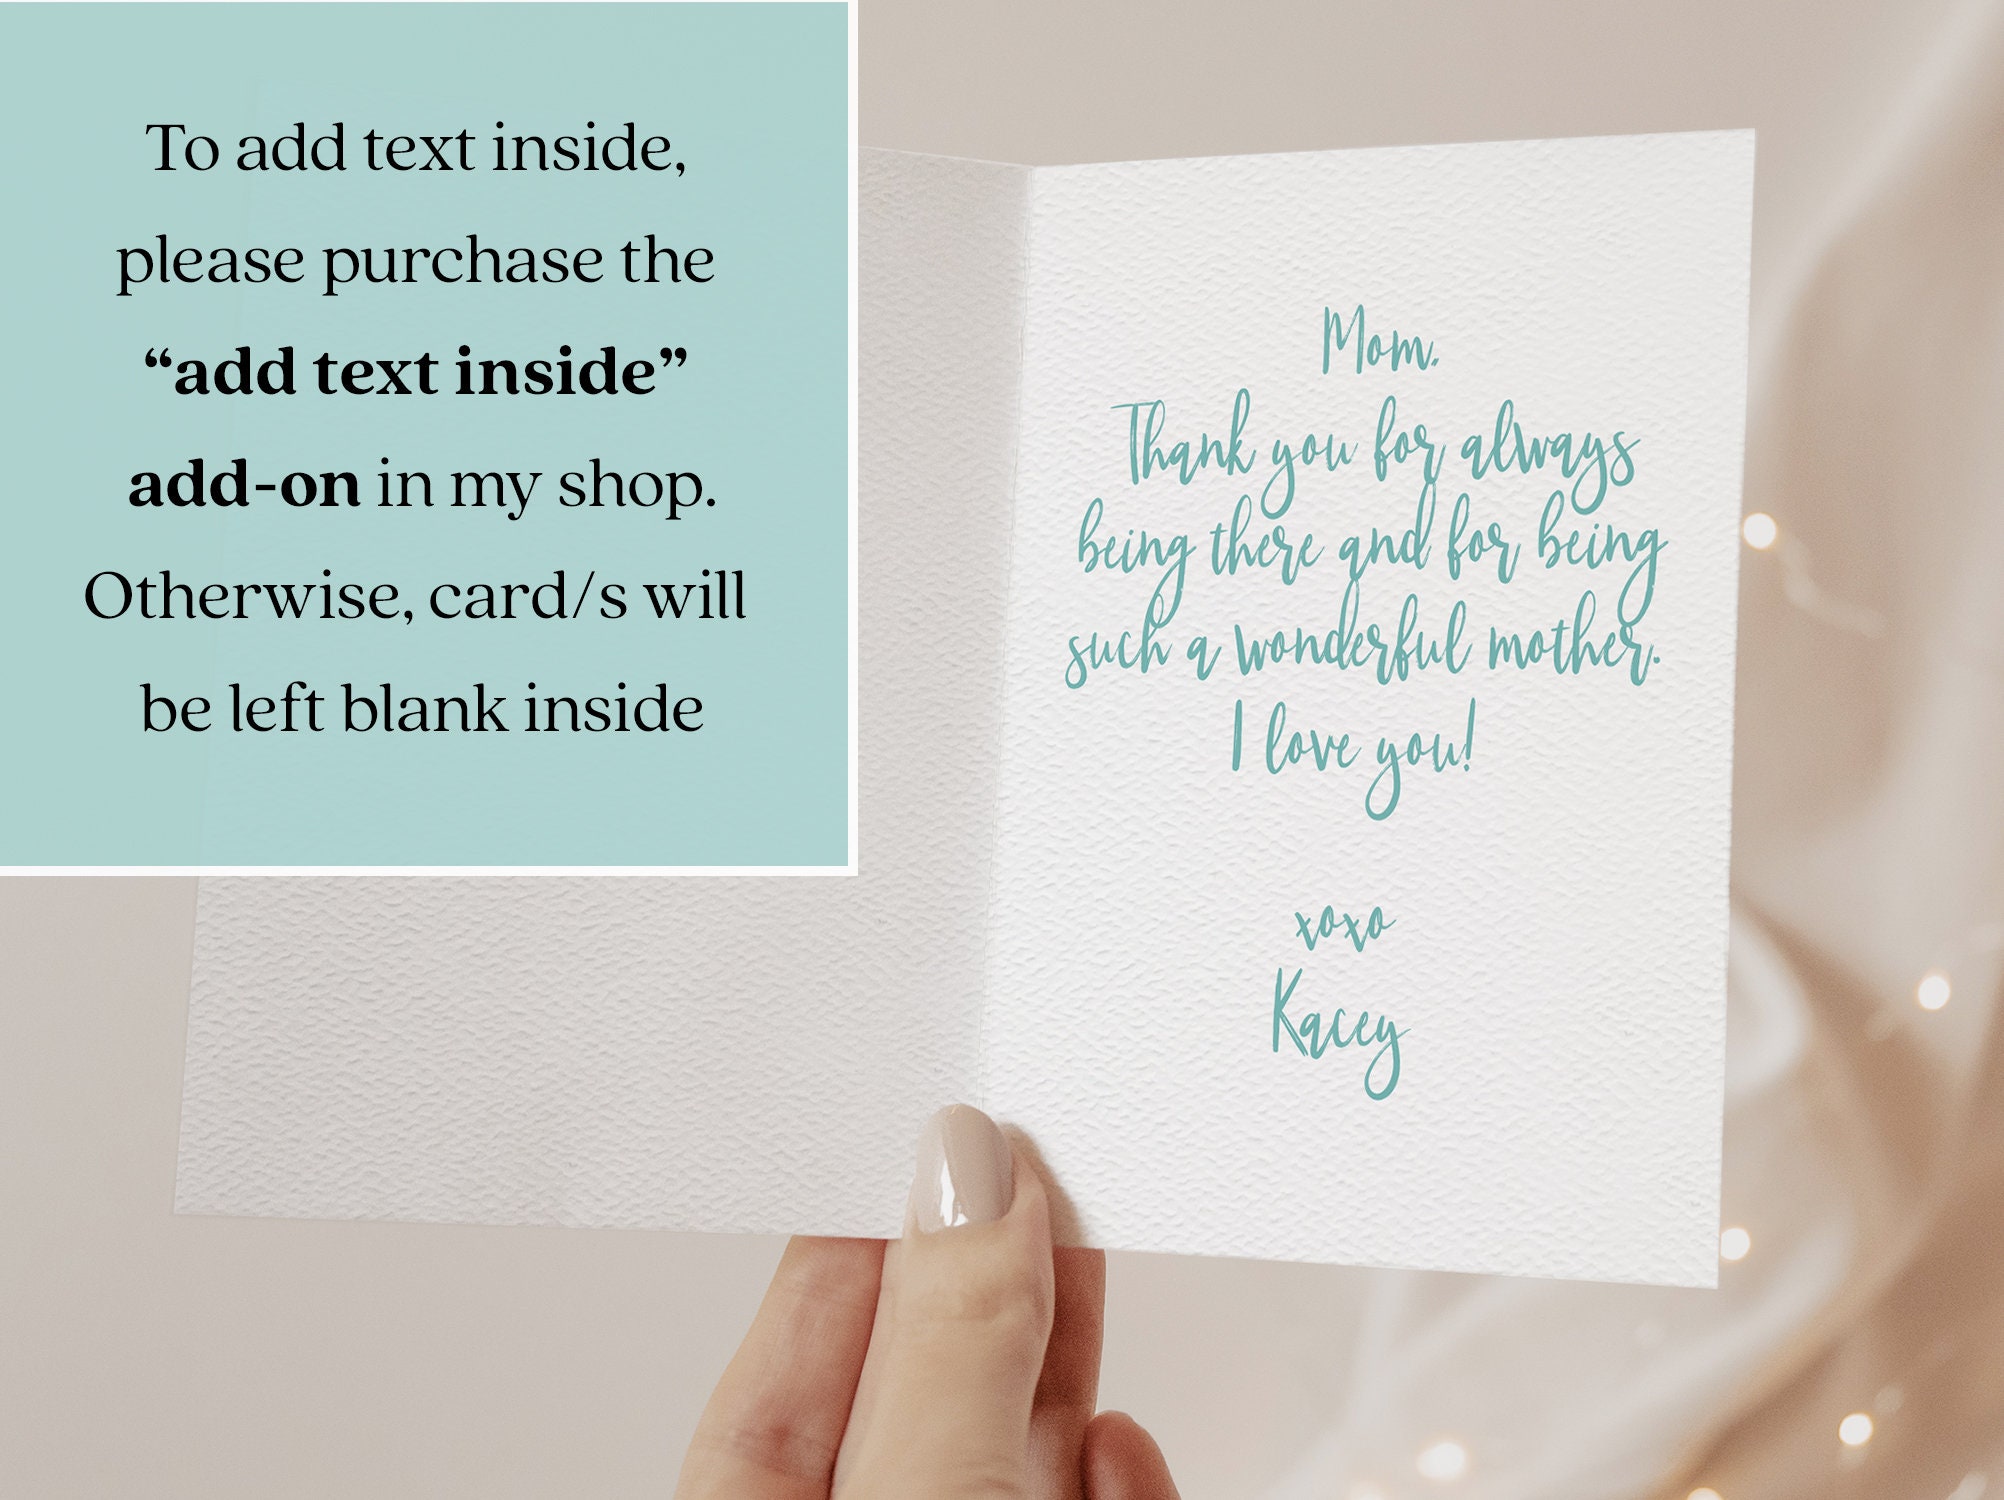 To add text inside,
please purchase the
“add text inside”
add-on in my shop.
Otherwise, card/s will
be left blank inside
Mom,
Thank you for always
being there and for being
such a wonderful mother.
I love you!
xoxo
Kacey